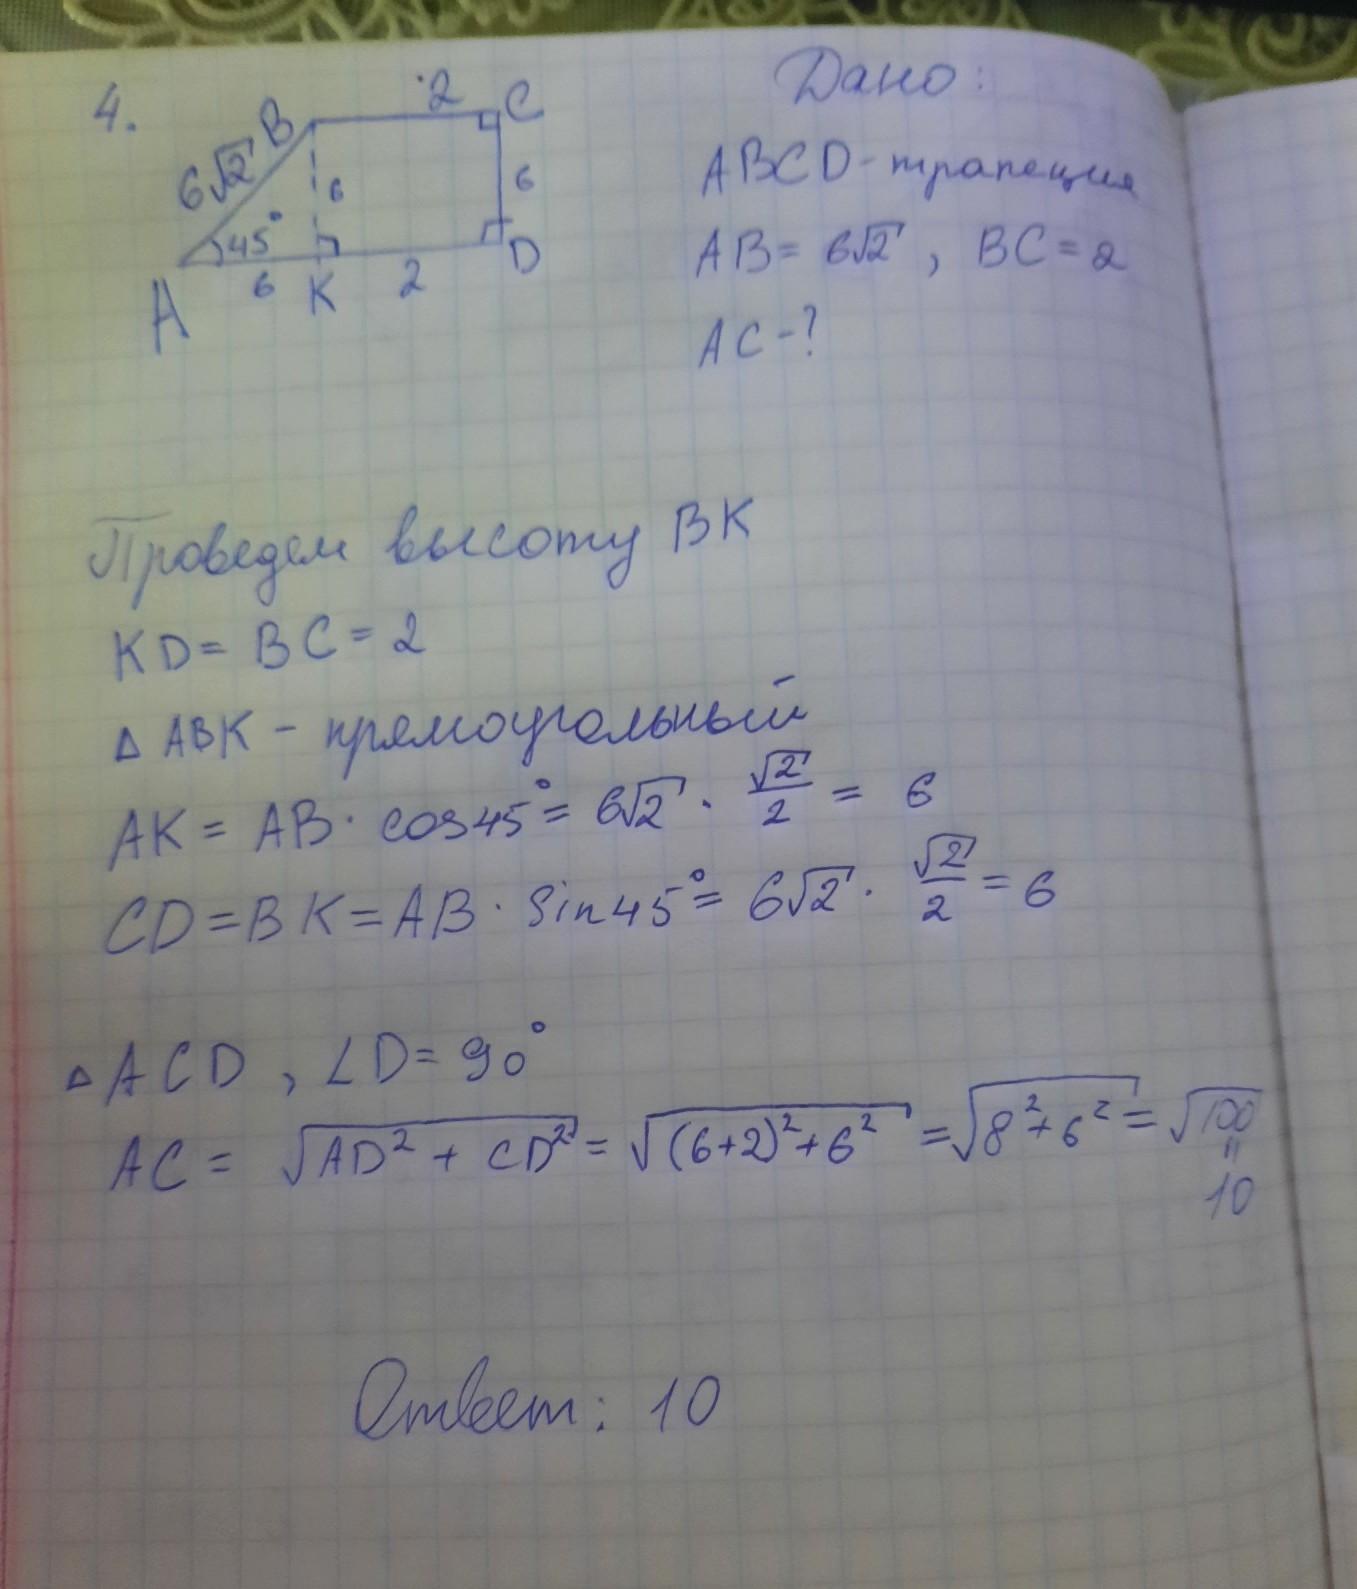 4.
B 2 C
6√2 6 6
45°
A 6 K 2 D
Дано:
ABCD - трапеция
AB = 6√2, BC = 2
AC - ?
Проведем высоту BK
KD = BC = 2
△ ABK - прямоугольный
AK = AB · cos45° = 6√2 · √2/2 = 6
CD = BK = AB · sin45° = 6√2 · √2/2 = 6
△ ACD, ∠D = 90°
AC = √(AD² + CD²) = √((6+2)² + 6²) = √(8² + 6²) = √100
=
10
Ответ: 10